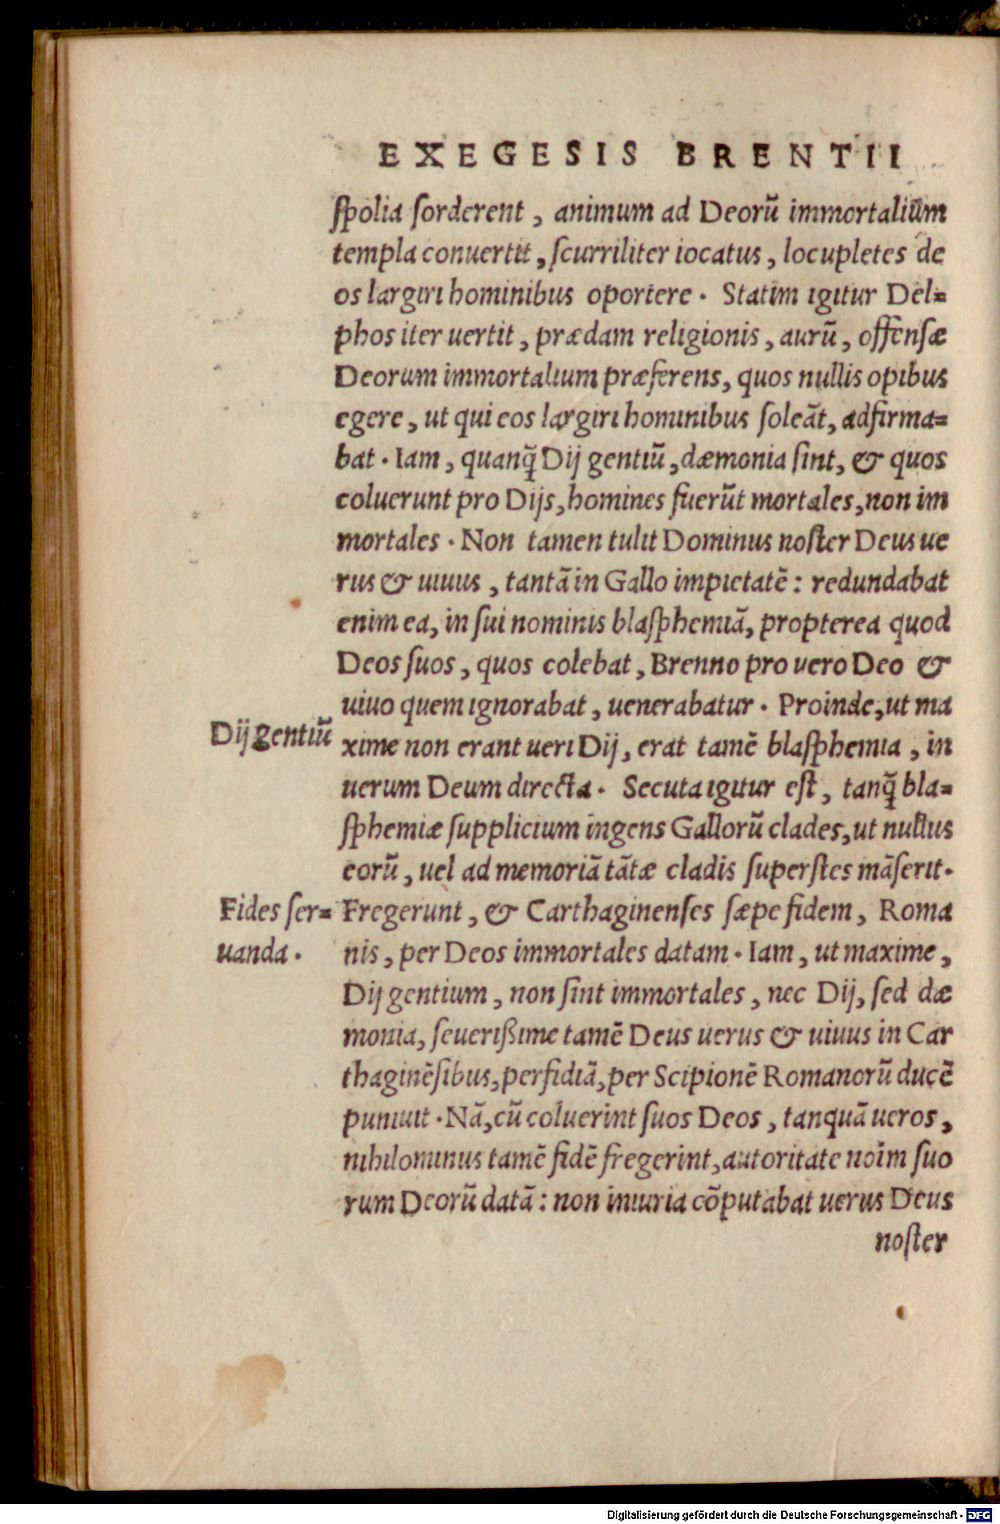 EXEGESIS BRENTII
ſpolia ſorderent, animum ad Deorū immortalium
templa conuertit, ſcurriliter iocatus, locupletes de
os largiri hominibus oportere. Statim igitur Del=
phos iter uertit, prædam religionis, aurū, offenſæ
Deorum immortalium præferens, quos nullis opibus
egere, ut qui eos largiri hominibus ſoleāt, adfirma=
bat. Iam, quanq̄ Dij gentiū, dæmonia ſint, & quos
coluerunt pro Dijs, homines fuerūt mortales, non im
mortales. Non tamen tulit Dominus noſter Deus ue
rus & uiuus, tantā in Gallo impietatē: redundabat
enim ea, in ſui nominis blaſphemiā, propterea quod
Deos ſuos, quos colebat, Brenno pro uero Deo &
uiuo quem ignorabat, uenerabatur. Proinde, ut ma
Dij gentiū
xime non erant ueri Dij, erat tamē blaſphemia, in
uerum Deum directa. Secuta igitur eſt, tanq̄ bla=
ſphemiæ ſupplicium ingens Gallorū clades, ut nullus
eorū, uel ad memoriā tātæ cladis ſuperſtes māſerit.
Fides ſer=
uanda.
Fregerunt, & Carthaginenſes ſæpe fidem, Roma
nis, per Deos immortales datam. Iam, ut maxime,
Dij gentium, non ſint immortales, nec Dij, ſed dæ
monia, ſeuerißime tamē Deus uerus & uiuus in Car
thaginēſibus, perfidiā, per Scipionē Romanorū ducē
puniuit. Nā, cū coluerint ſuos Deos, tanquā ueros,
nihilominus tamē fidē fregerint, autoritate noīm ſuo
rum Deorū datā: non iniuria cōputabat uerus Deus
noſter
Digitalisierung gefördert durch die Deutsche Forschungsgemeinschaft - DFG